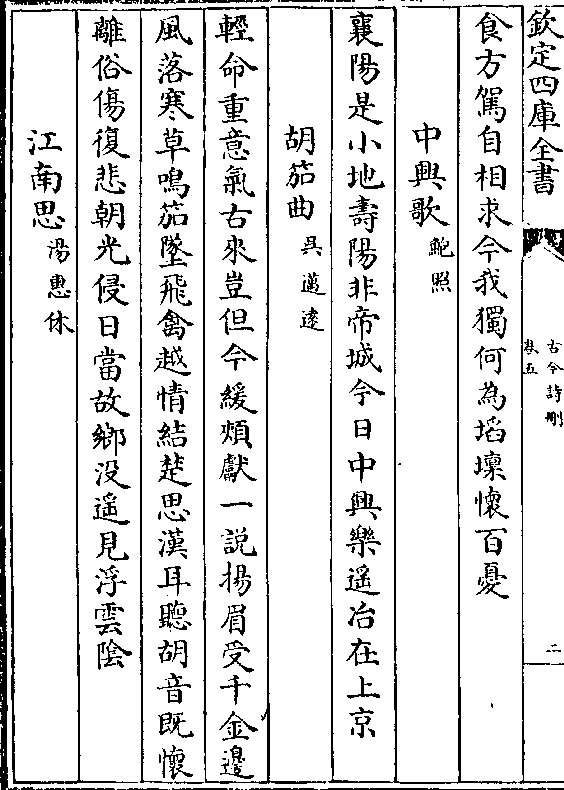 欽定四庫全書
古今詩刪
卷五
二
食方駕自相求今我獨何為埳壈懷百憂
中興歌 鮑照
襄陽是小地壽陽非帝城今日中興樂遥冶在上京
胡笳曲 呉邁逺
輕命重意氣古來豈但今緩頰獻一説揚眉受千金邊
風落寒草鳴笳墜飛禽越情結楚思漢耳聽胡音既懷
離俗傷復悲朝光侵日當故鄉没遥見浮雲陰
江南思 湯惠休